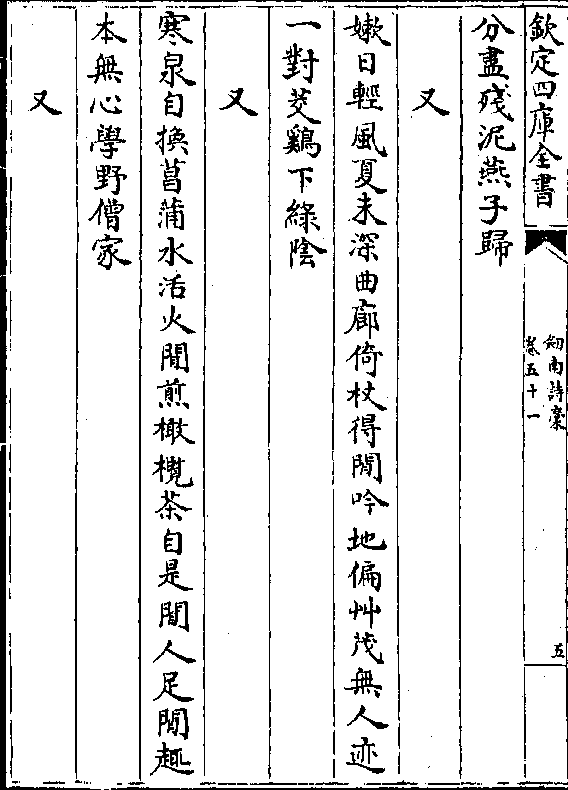 欽定四庫全書
劒南詩稾
卷五十一
五
分盡殘泥燕子歸
又
嫰日輕風夏未深曲廊倚杖得閒吟地偏艸茂無人迹
一對茭鷄下綠陰
又
寒泉自換菖蒲水活火閒煎橄欖茶自是閒人足閒趣
本無心學野僧家
又